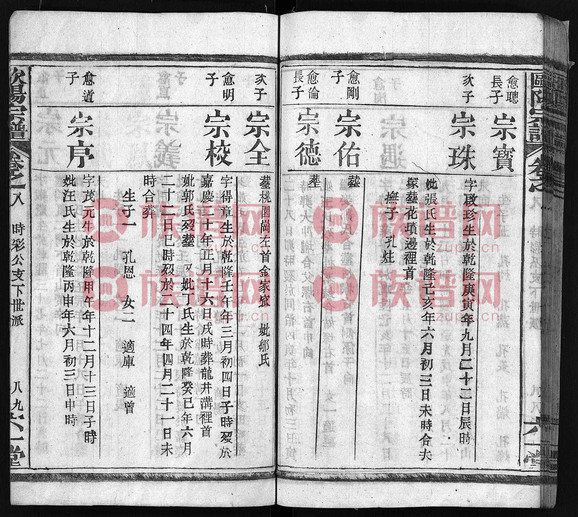 歐陽宗譜
卷之八
六一堂
愈聰長子
宗寶
次子
宗珠
字璈珍生於乾隆庚寅年九月二十二日辰時
妣張氏生於乾隆己亥年六月初三日未時合夫
塚葬花項邊裡首
撫子 孔姓
愈剛子
宗佑
葬
愈倫長子
宗德
葬
次子
宗全
葬桃園
妣鄒氏
愈明子
宗校
字得章生於乾隆壬午年三月初四日子時歿於
嘉慶二十年正月十六日戌時葬龍井溝裡首
妣郭氏歿葬 又妣丁氏生於乾隆癸巳年六月
二十二日 時歿於二十四年四月二十一日未
時合葬
生子一 孔恩 女二 適庫 適曾
愈道子
宗序
字茂元生於乾隆甲午年十二月十三日子時
妣汪氏生於乾隆丙申年六月初三日申時
歐陽宗譜
卷之八
時彩公支下世派
八九
六一堂
族譜网
zupu.cn